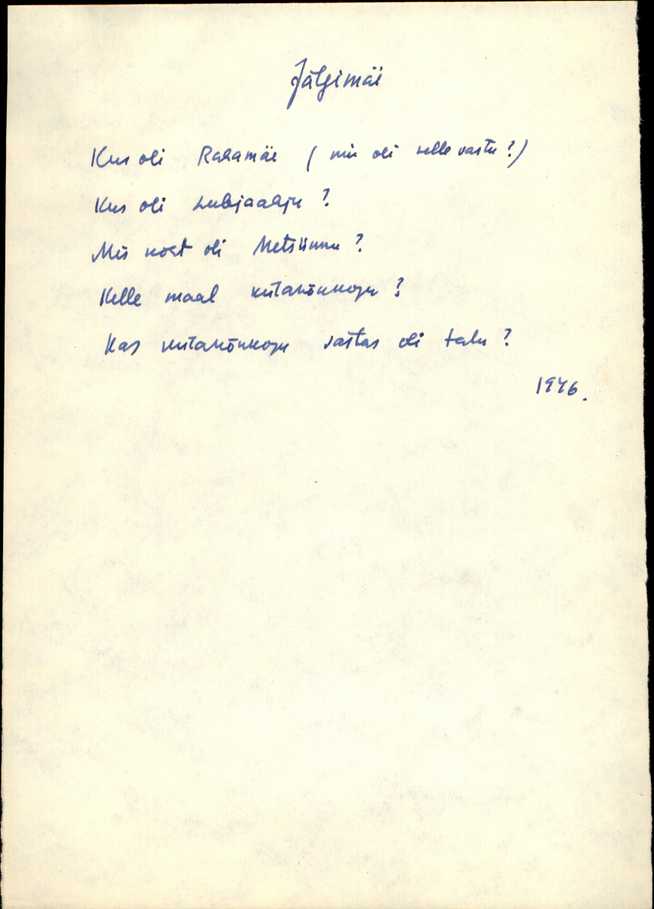 Jälgimäe
Kus oli Rahamäe (mis oli selle vastu?)
Kus oli Lubjaahju?
Mis koht oli Metsünnu?
Kelle maal külanõukogu?
Kas külanõukogu vastas oli talu?
1946.